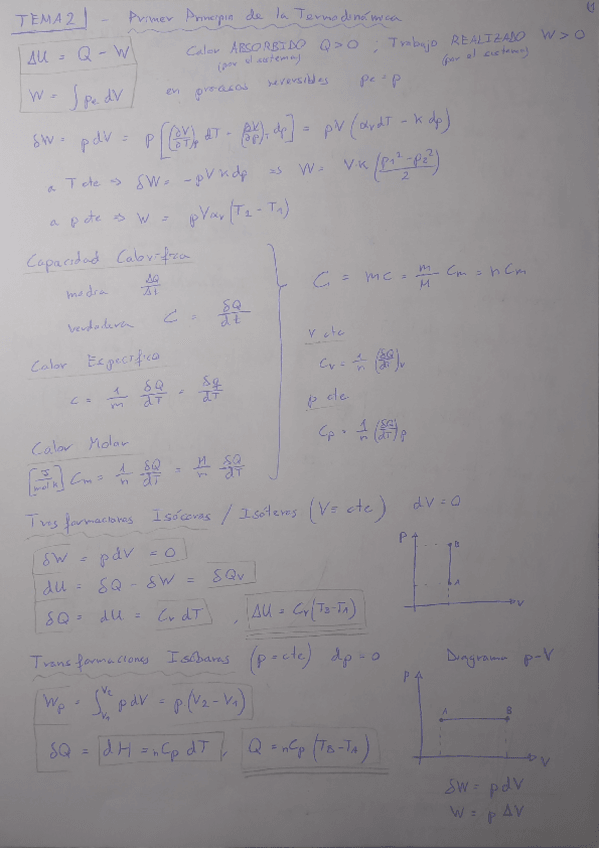 TEMA 2 - Primer Principio de la Termodinámica
ΔU = Q - W
Calor ABSORBIDO Q>0 , Trabajo REALIZADO W>0
(por el sistema) (por el sistema)
W = ∫ pe dV en procesos reversibles pe = p
δW = p dV = p [(∂V/∂T)p dT - (∂V/∂p)T dp] = pV (αv dT - k dp)
a T cte ⇒ δW = -pVk dp ⇒ W = V·k (p1² - p2² / 2)
a p cte ⇒ W = pVαv (T2 - T1)
Capacidad Calorífica
media ΔQ/Δt
verdadera C = δQ/dt
C = mc = m/M Cm = n Cm
Calor Específico
c = 1/m δQ/dT = δq/dT
V cte
Cv = 1/n (δQ/dT)v
p cte
Cp = 1/n (δQ/dT)p
Calor Molar
[J/mol K] Cm = 1/n δQ/dT = M/m δQ/dT
Transformaciones Isócoras / Isóteras (V = cte) dV = 0
δW = p dV = 0
dU = δQ - δW = δQv
δQ = dU = Cv dT , ΔU = Cv (TB - TA)
P
B
A
V
Transformaciones Isóbaras (p = cte) dp = 0
Diagrama p-V
Wp = ∫V1 V2 p dV = p (V2 - V1)
δQ = dH = nCp dT , Q = nCp (TB - TA)
P
A B
V
δW = p dV
W = p ΔV